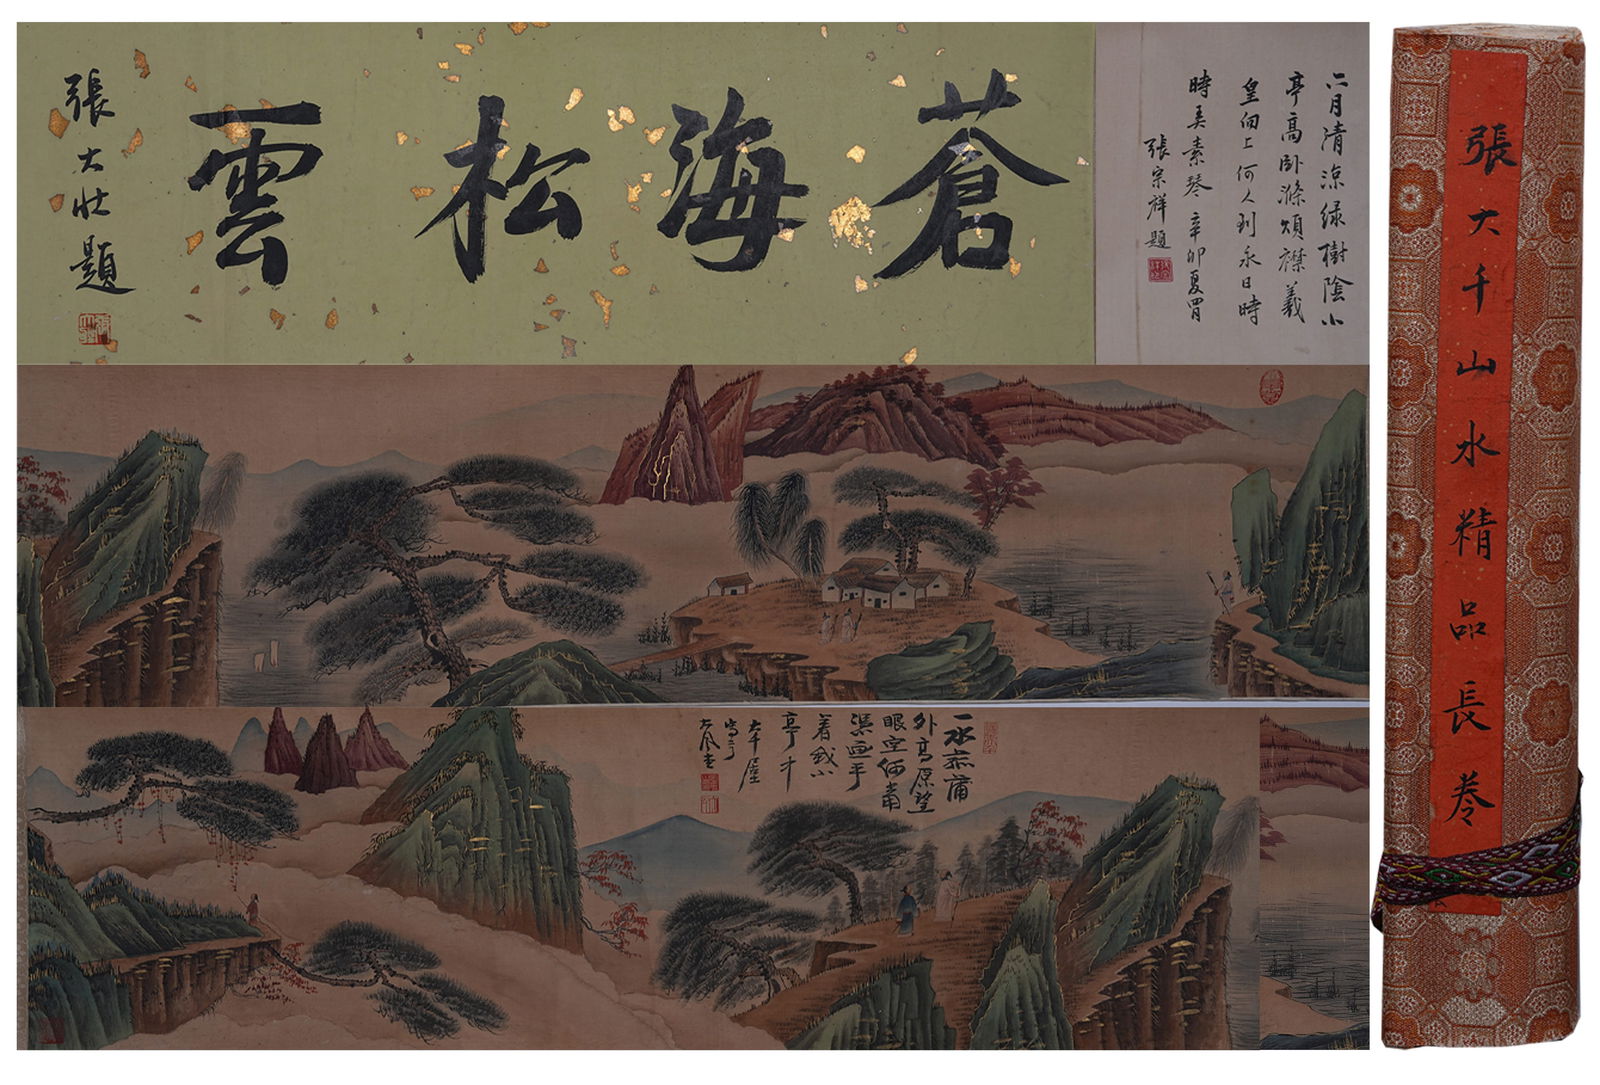 蒼海松雲
張大壯題
二月清涼綠樹陰小
亭高臥滌煩襟羲
皇向上何人到永日時
時弄素琴 辛卯夏四月
張宗祥題
張大千山水精品長卷
外高原望
眼空何
畫手
著我小
亭中